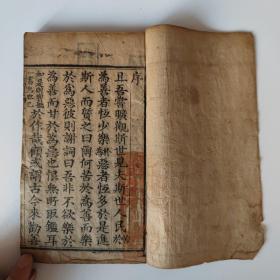 序
且吾嘗曠觀斯世見夫斯世人民於
為善者恆少樂於惡者恆多於是進
斯人而質之曰爾何苦於為善而樂
於為惡彼則謝詞曰吾非不欲樂於
為善而甘於為惡也恨無所取鑑耳
於作哉爾或謂古今來勸善